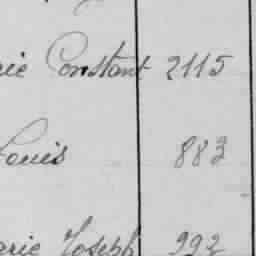 rie Constant 2115
Louis 883
arie Joseph 992